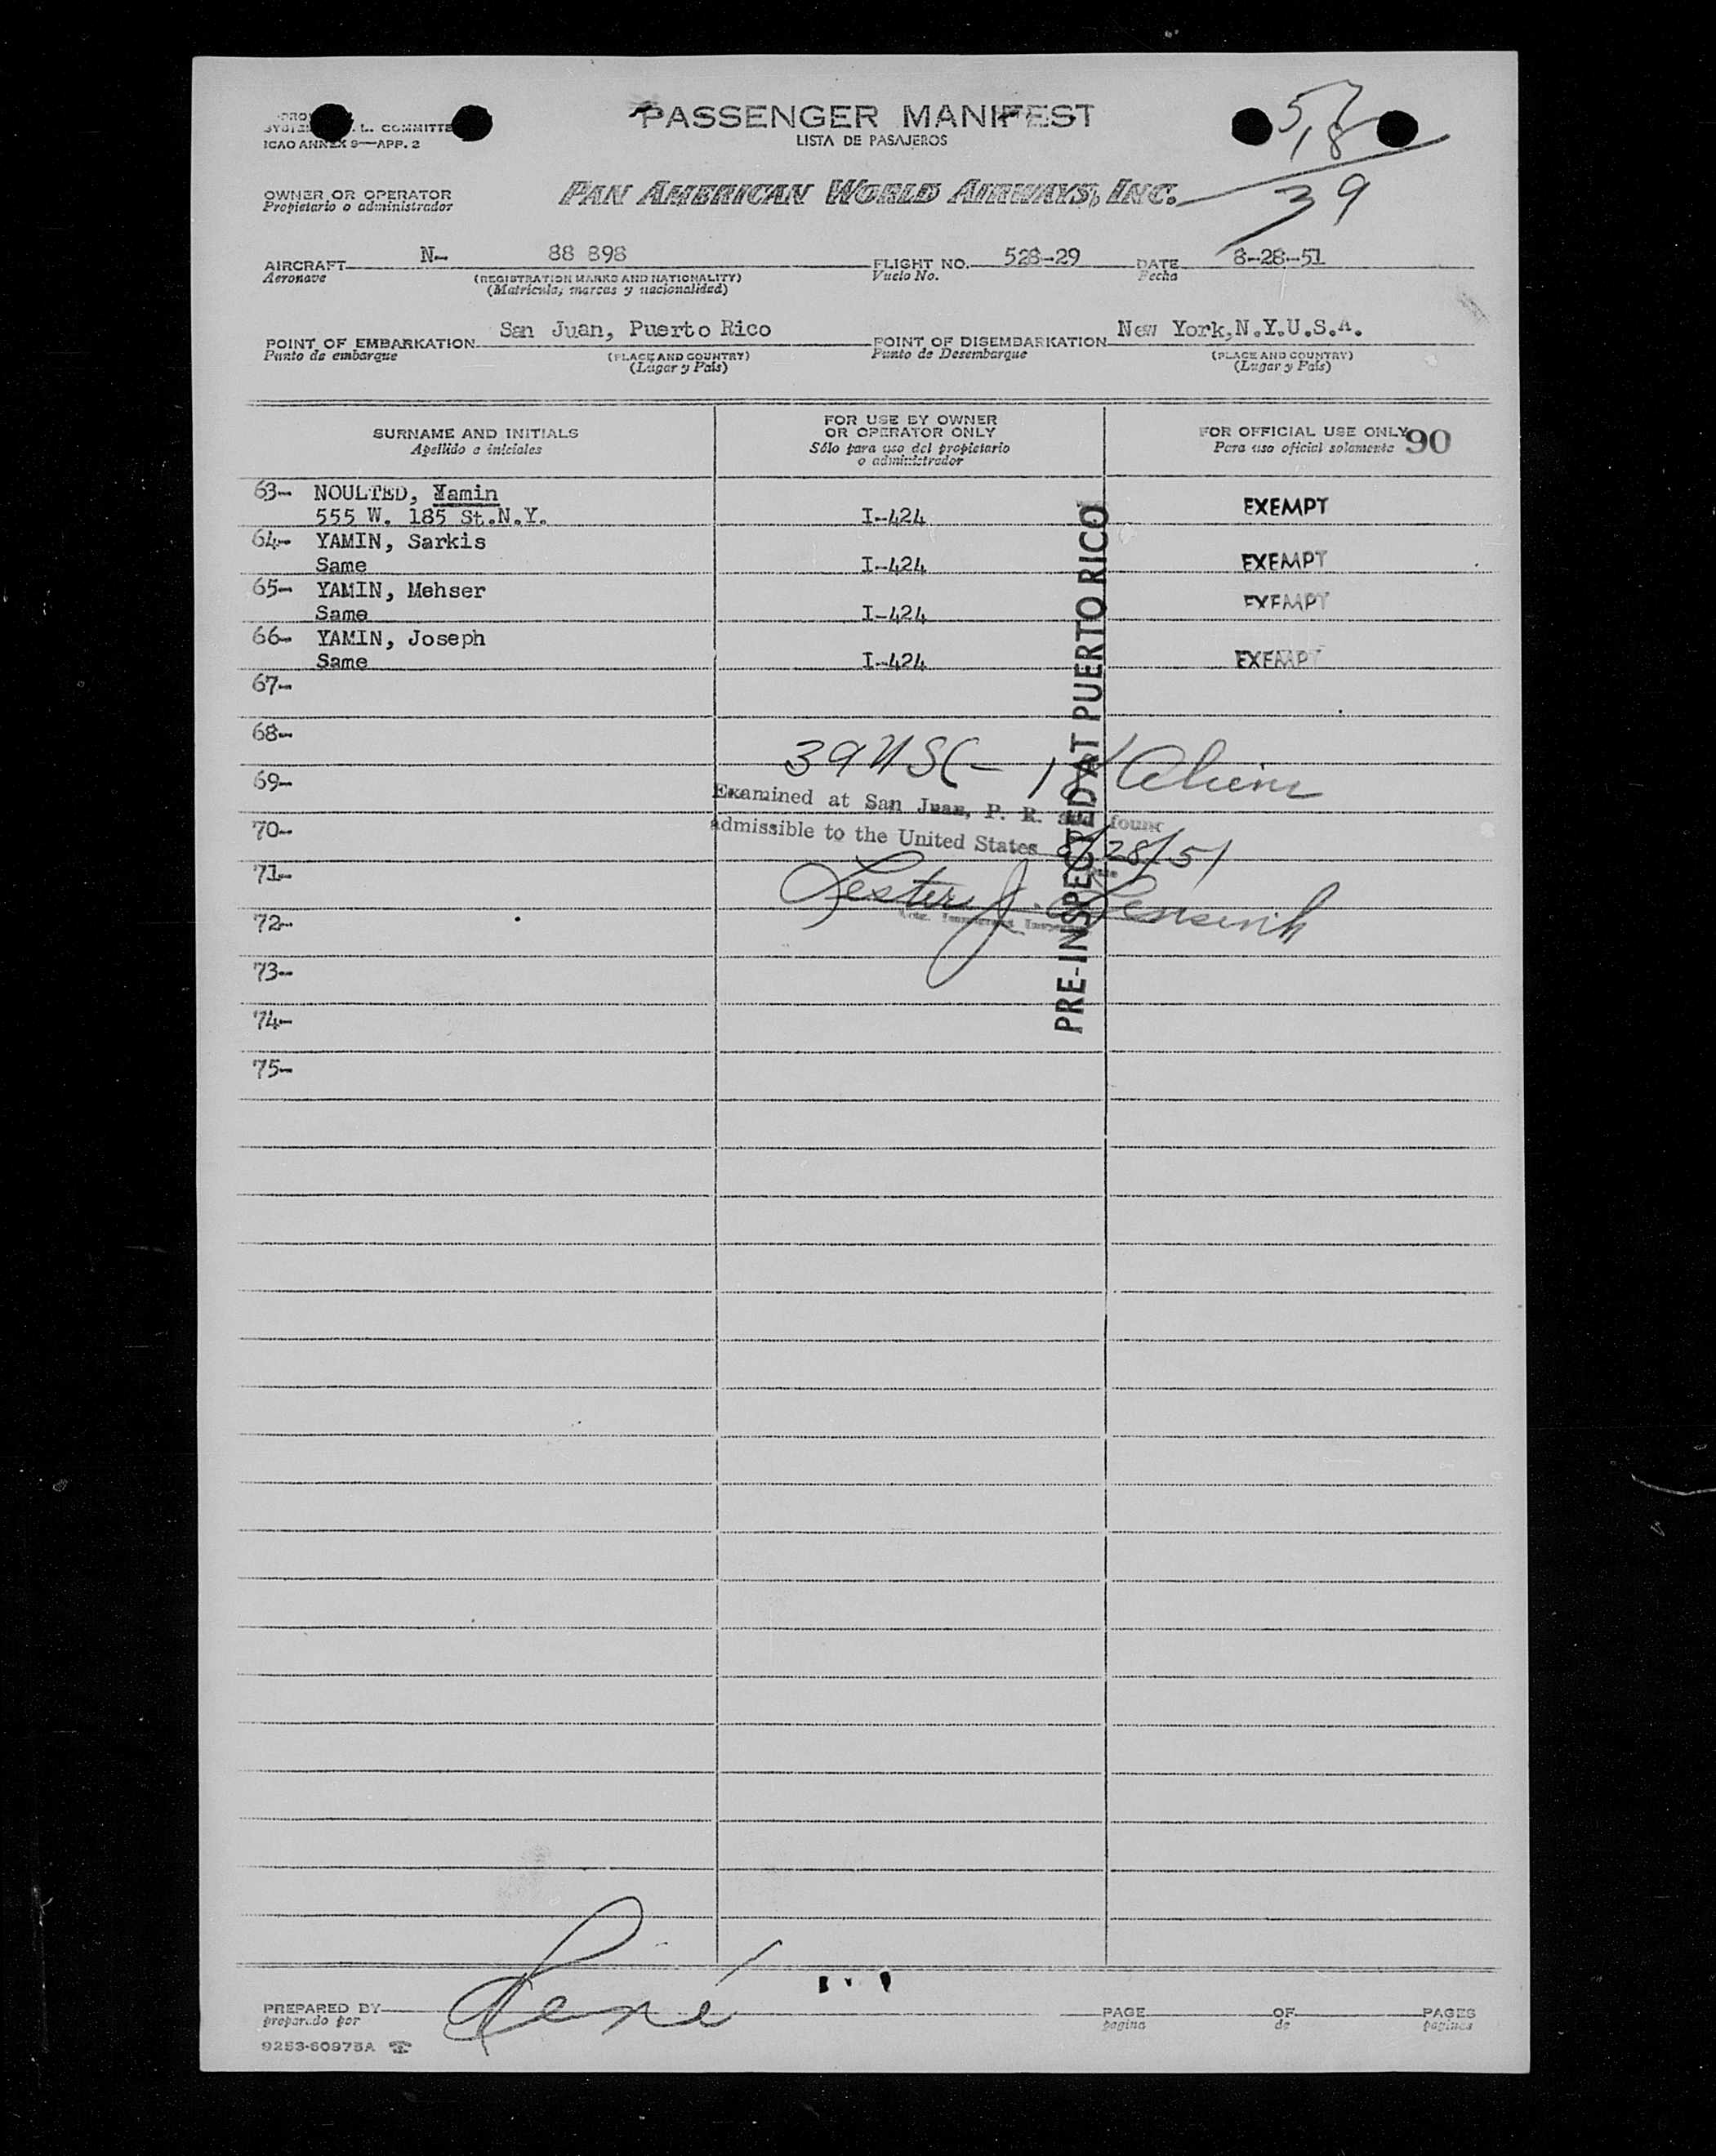 L. COMMITTE
ICAO ANNEX 9—APP. 2
PASSENGER MANIFEST
LISTA DE PASAJEROS
39
OWNER OR OPERATOR
Propietario o administrador
PAN AMERICAN WORLD AIRWAYS, INC.
AIRCRAFT N- 88 898 FLIGHT NO. 528-29 DATE 8-28-51
Aeronave (REGISTRATION MARKS AND NATIONALITY) Vuelo No. Fecha
(Matricula, marcas y nacionalidad)
POINT OF EMBARKATION San Juan, Puerto Rico POINT OF DISEMBARKATION New York,N.Y.U.S.A.
Punto de embarque (PLACE AND COUNTRY) Punto de Desembarque (PLACE AND COUNTRY)
(Lugar y País) (Lugar y País)
SURNAME AND INITIALS
Apellido e iniciales
FOR USE BY OWNER
OR OPERATOR ONLY
Sólo para uso del propietario
o administrador
FOR OFFICIAL USE ONLY
Para uso oficial solamente 90
63- NOULTED, Yamin EXEMPT
555 W. 185 St.N.Y. I-424
64- YAMIN, Sarkis EXEMPT
Same I-424
65- YAMIN, Mehser EXEMPT
Same I-424
66- YAMIN, Joseph EXEMPT
Same I-424
67-
68-
69-
70-
71-
72-
73-
74-
75-
PRE-INSPECTED AT PUERTO RICO
39 USC - 18
Examined at San Juan, P. R. and found
admissible to the United States 8/28/51
Lester J.
René
PREPARED BY PAGE OF PAGES
preparado por pagina de paginas
9253-60975A